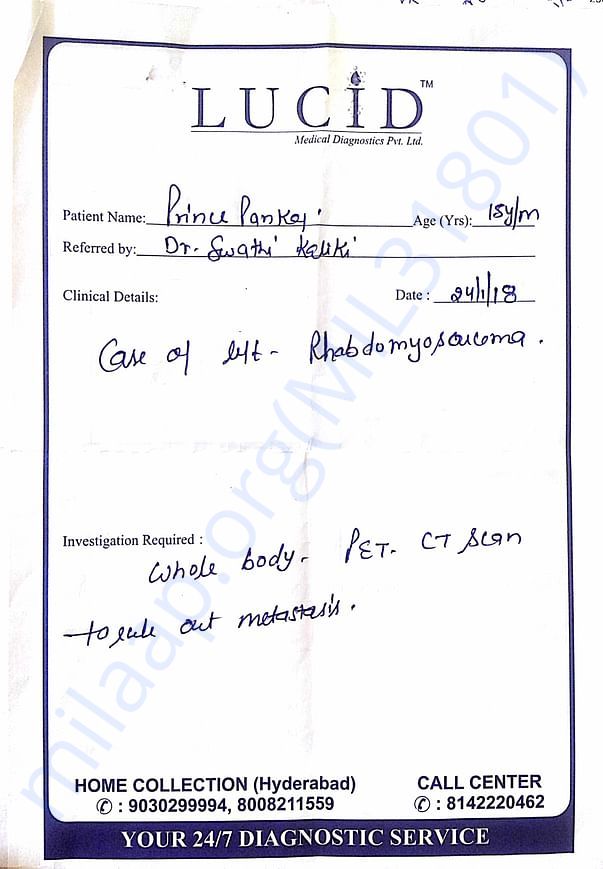 LUCID™
Medical Diagnostics Pvt. Ltd.
Patient Name: Prince Pankaj Age (Yrs): 15y/m
Referred by: Dr. Swathi Kaliki
Clinical Details: Date : 24/1/18
Case of left - Rhabdomyosarcoma.
Investigation Required :
Whole body - PET - CT Scan
to rule out metastasis.
HOME COLLECTION (Hyderabad) CALL CENTER
✆ : 9030299994, 8008211559 ✆ : 8142220462
YOUR 24/7 DIAGNOSTIC SERVICE
milaap.org(MIL31801)